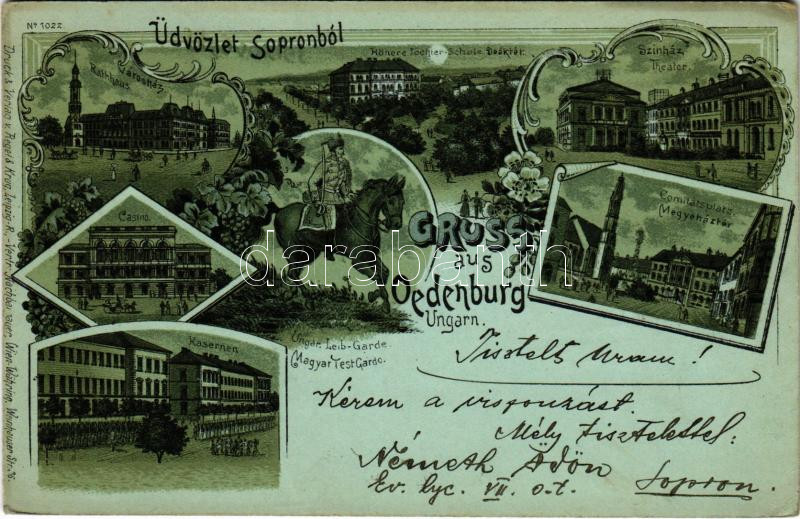 No 1022
Üdvözlet Sopronból
Höhere Tochter-Schule Deáktér.
Városház
Rathhaus
Színház
Theater.
Casino.
Comitatsplatz
Megyeháztér
GRUSS
aus
Oedenburg
Ungarn.
Ungar. Leib-Garde
Magyar Test Gárdo.
Kasernen
darabanth
Tisztelt Uram!
Kérem a viszonzást.
Mély tisztelettel:
Németh Ödön
Ev. lyc. VII. o.t. Sopron.
Druck & Verlag v. Regel & Krug, Leipzig-R. - Vertr.